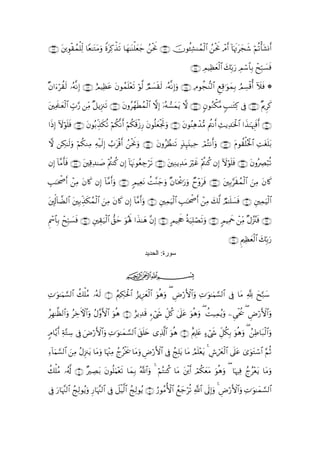 ءَأَنتُمْ أَنشَأْتُمْ شَجَرَتَهَآ أَمْ نَحْنُ ٱلْمُنشِـُٔونَ ۝ نَحْنُ جَعَلْنَٰهَا تَذْكِرَةً وَمَتَٰعًا لِّلْمُقْوِينَ ۝
فَسَبِّحْ بِٱسْمِ رَبِّكَ ٱلْعَظِيمِ ۝
۞ فَلَآ أُقْسِمُ بِمَوَٰقِعِ ٱلنُّجُومِ ۝ وَإِنَّهُۥ لَقَسَمٌ لَّوْ تَعْلَمُونَ عَظِيمٌ ۝ إِنَّهُۥ لَقُرْءَانٌ
كَرِيمٌ ۝ فِى كِتَٰبٍ مَّكْنُونٍ ۝ لَّا يَمَسُّهُۥٓ إِلَّا ٱلْمُطَهَّرُونَ ۝ تَنزِيلٌ مِّن رَّبِّ ٱلْعَٰلَمِينَ ۝
أَفَبِهَٰذَا ٱلْحَدِيثِ أَنتُم مُّدْهِنُونَ ۝ وَتَجْعَلُونَ رِزْقَكُمْ أَنَّكُمْ تُكَذِّبُونَ ۝ فَلَوْلَآ إِذَا
بَلَغَتِ ٱلْحُلْقُومَ ۝ وَأَنتُمْ حِينَئِذٍ تَنظُرُونَ ۝ وَنَحْنُ أَقْرَبُ إِلَيْهِ مِنكُمْ وَلَٰكِن لَّا
تُبْصِرُونَ ۝ فَلَوْلَآ إِن كُنتُمْ غَيْرَ مَدِينِينَ ۝ تَرْجِعُونَهَآ إِن كُنتُمْ صَٰدِقِينَ ۝ فَأَمَّآ إِن
كَانَ مِنَ ٱلْمُقَرَّبِينَ ۝ فَرَوْحٌ وَرَيْحَانٌ وَجَنَّتُ نَعِيمٍ ۝ وَأَمَّآ إِن كَانَ مِنْ أَصْحَٰبِ
ٱلْيَمِينِ ۝ فَسَلَٰمٌ لَّكَ مِنْ أَصْحَٰبِ ٱلْيَمِينِ ۝ وَأَمَّآ إِن كَانَ مِنَ ٱلْمُكَذِّبِينَ ٱلضَّآلِّينَ
۝ فَنُزُلٌ مِّنْ حَمِيمٍ ۝ وَتَصْلِيَةُ جَحِيمٍ ۝ إِنَّ هَٰذَا لَهُوَ حَقُّ ٱلْيَقِينِ ۝ فَسَبِّحْ بِٱسْمِ
رَبِّكَ ٱلْعَظِيمِ ۝
سورة: الحديد
بِسْمِ ٱللَّهِ ٱلرَّحْمَٰنِ ٱلرَّحِيمِ
سَبَّحَ لِلَّهِ مَا فِى ٱلسَّمَٰوَٰتِ وَٱلْأَرْضِ ۖ وَهُوَ ٱلْعَزِيزُ ٱلْحَكِيمُ ۝ لَهُۥ مُلْكُ ٱلسَّمَٰوَٰتِ
وَٱلْأَرْضِ ۖ يُحْىِۦ وَيُمِيتُ ۖ وَهُوَ عَلَىٰ كُلِّ شَىْءٍ قَدِيرٌ ۝ هُوَ ٱلْأَوَّلُ وَٱلْءَاخِرُ وَٱلظَّٰهِرُ
وَٱلْبَاطِنُ ۖ وَهُوَ بِكُلِّ شَىْءٍ عَلِيمٌ ۝ هُوَ ٱلَّذِى خَلَقَ ٱلسَّمَٰوَٰتِ وَٱلْأَرْضَ فِى سِتَّةِ أَيَّامٍ
ثُمَّ ٱسْتَوَىٰ عَلَى ٱلْعَرْشِ ۚ يَعْلَمُ مَا يَلِجُ فِى ٱلْأَرْضِ وَمَا يَخْرُجُ مِنْهَا وَمَا يَنزِلُ مِنَ ٱلسَّمَآءِ
وَمَا يَعْرُجُ فِيهَا ۖ وَهُوَ مَعَكُمْ أَيْنَ مَا كُنتُمْ ۚ وَٱللَّهُ بِمَا تَعْمَلُونَ بَصِيرٌ ۝ لَّهُۥ مُلْكُ
ٱلسَّمَٰوَٰتِ وَٱلْأَرْضِ ۚ وَإِلَى ٱللَّهِ تُرْجَعُ ٱلْأُمُورُ ۝ يُولِجُ ٱلَّيْلَ فِى ٱلنَّهَارِ وَيُولِجُ ٱلنَّهَارَ فِى